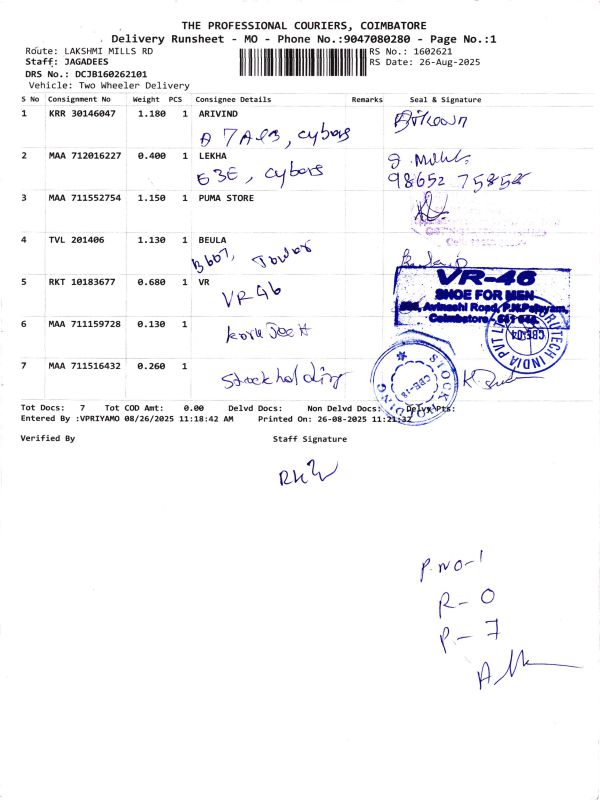 THE PROFESSIONAL COURIERS, COIMBATORE
Delivery Runsheet - MO - Phone No.:9047080280 - Page No.:1
Route: LAKSHMI MILLS RD RS No.: 1602621
Staff: JAGADEES RS Date: 26-Aug-2025
DRS No.: DCJB160262101
Vehicle: Two Wheeler Delivery
S No Consignment No Weight PCS Consignee Details Remarks Seal & Signature
1 KRR 30146047 1.180 1 ARIVIND
2 MAA 712016227 0.400 1 LEKHA
E3E, cybers
98652 75858
3 MAA 711552754 1.150 1 PUMA STORE
4 TVL 201406 1.130 1 BEULA
B607, Tower
5 RKT 10183677 0.680 1 VR
VR46
VR-46
SHOE FOR MEN
Avinashi Road, P.N.Palayam,
Coimbatore - 641
6 MAA 711159728 0.130 1
INDIA PVT LT
CBE-04
7 MAA 711516432 0.260 1
Stockholding
STOCK HOLDING
CBE-18
Tot Docs: 7 Tot COD Amt: 0.00 Delvd Docs: Non Delvd Docs: Delvy Pts:
Entered By :VPRIYAMO 08/26/2025 11:18:42 AM Printed On: 26-08-2025 11:21:32
Verified By Staff Signature
P.NO-1
R-0
P-7